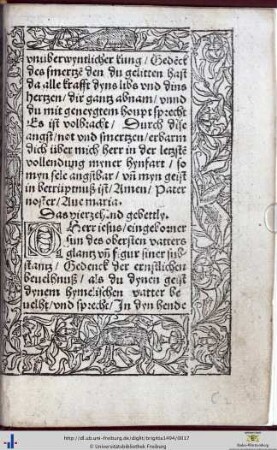 vnüberwyntlicher küng / Gedeck
des smertzē den du gelitten hast
da alle krafft dyns libs vnd dins
hertzen / dir gantz abnam / vnnd
du mit geneygtem houpt sprecht
Es ist volbracht / Durch dise
angst / not vnd smertzen / erbarm
dich über mich herr in der letzstē
vollendung myner hynfart / so
myn sele angstbar / vñ myn geist
in betrüptnuß ist / Amen / Pater
noster / Aue maria.
Das vierzehend gebettly.
O Herr iesus / eingeborner
sun des obersten vatters
glantz vñ figur siner sub
stantz / Gedenck der ernstlichen
beuelhnuß / als du dynen geist
dynem hymelischen vatter be
uelht / vnd sprecht / In dyn hende
http://dl.ub.uni-freiburg.de/diglit/brigitta1494/0117
© Universitätsbibliothek Freiburg